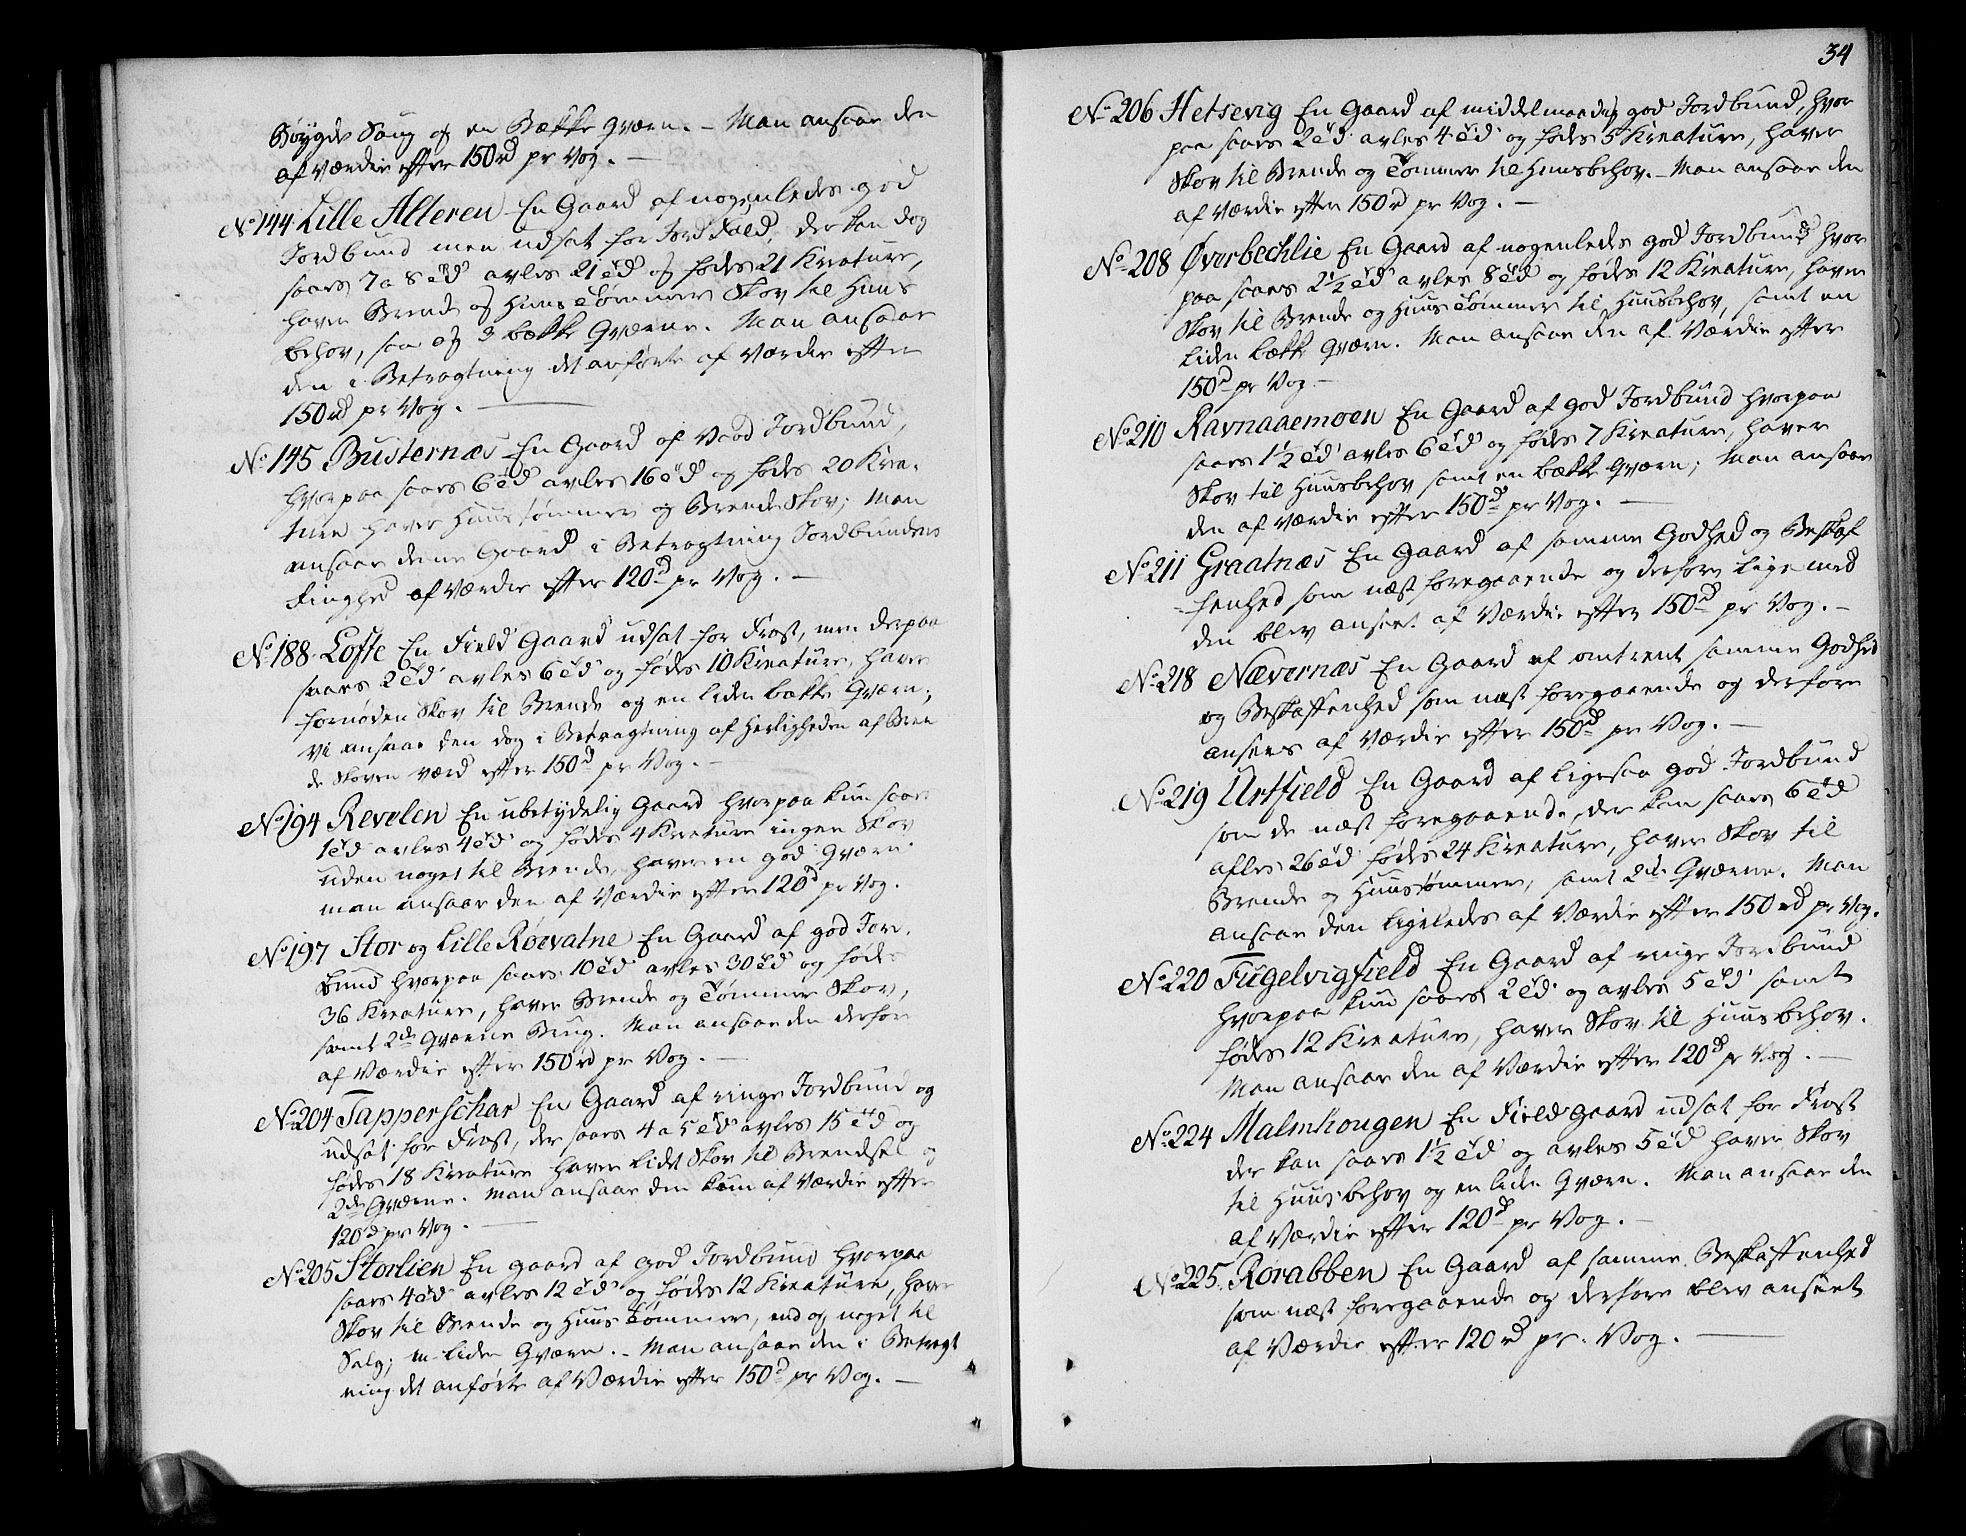 Bøygde Saug og en Bække Qværn. – Man ansaae den
af Værdie efter 150 rd pr Vog. —
No 144 Lille Alteren En Gaard af nogenledes god
Jordbund men udsat for Jord Fald, der kan dog
saaes 7 a 8 Td avles 21 Td og fødes 21 Kreature,
haver Brende og Huus Tømmer Skov til Huus
behov, saa og 3 bække Qværne. Man ansaae
den i Betragtning det anførte af Værdie efter
150 rd pr Vog. —
No 145 Busternæs En Gaard af Vaad Jordbund,
hvorpaa saaes 6 Td avles 16 Td og fødes 20 Krea-
ture haver Huustømmer og Brende Skov; Man
ansaae denne Gaard i Betragtning Jordbundens
Ringhed af Værdie efter 120 d pr Vog. —
No 188 Lofte En Field Gaard udsat for Frost, men derpaa
saaes 2 Td avles 6 Td og fødes 10 Kreature, haver
fornøden Skov til Brende og en liden bække Qværn;
Vi ansaae den dog i Betragtning af Herligheden af Bren
de Skoven værd efter 150 d pr Vog. —
No 194 Revelen En ubetydelig Gaard hvorpaa kun saaes
1 Td avles 4 Td og fødes 4 Kreature ingen Skov
uden noget til Brende, haver en god Qværn.
man ansaae den af Værdie efter 120 d pr Vog.
No 197 Stor og Lille Røsvatne En Gaard af god Jord-
bund hvorpaa saaes 10 Td avles 30 Td og fødes
36 Kreature, haver Brende og Tømmer Skov,
samt 2de Qværne Brug. Man ansaae den derfor
af Værdie efter 150 rd pr Vog. —
No 204 Tapperschar En Gaard af ringe Jordbund og
udsat for Frost, der saaes 4 a 5 Td avles 15 Td og
fødes 18 Kreature haver lidt Skov til Brendsel og
2de Qværne. Man ansaae den kun af Værdie efter
120 d pr Vog. —
No 205 Storlien En gaard af god Jordbund hvorpaa
saaes 4 Td avles 12 Td og fødes 12 Kreature, haver
Skov til Brende og Huus Tømmer, end og noget til
Salg; en liden Qværn. – Man ansaae den i Betragt
ning det anførte af Værdie efter 150 d pr Vog. —
34
No 206 Hetsevig En Gaard af middelmaadig god Jordbund, hvor
paa saaes 2 Td avles 4 Td og fødes 5 Kreature, haver
Skov til Brende og Tømmer til Huusbehov. – Man ansaae den
af Værdie efter 150 d pr Vog. —
No 208 Øverbechlie En Gaard af nogenledes god Jordbund hvor
paa saaes 2½ Td avles 8 Td og fødes 12 Kreature, haver
Skov til Brende og Huus Tømmer til Huusbehov, samt en
liden bække Qværn. Man ansaae den af Værdie efter
150 d pr Vog —
No 210 Ravnaaemoen En Gaard af god Jordbund hvorpaa
saaes 1½ Td avles 6 Td og fødes 7 Kreature, haver
Skov til Huusbehov samt en bække Qværn; Man ansaae
den af Værdie efter 150 d pr Vog. —
No 211 Graatnæs En Gaard af samme Godhed og Beskaf
fenhed som næst foregaaende og derfore lige med
den blev anseet af Værdie efter 150 d pr Vog. —
No 218 Nævernæs En Gaard af omtrent samme Godhed
og Beskaffenhed som næst foregaaende og derfore
ansees af Værdie efter 150 d pr Vog. —
No 219 Urtfield En Gaard af ligesaa god Jordbund
som de næst foregaaende, der kan saaes 6 Td
afles 26 Td fødes 24 Kreature, haver Skov til
Brende og Huustømmer, samt 2de Qværne. Man
ansaae den ligeledes af Værdie efter 150 rd pr Vog.
No 220 Fugelvigfield En Gaard af ringe Jordbund
hvorpaa kun saaes 2 Td og avles 5 Td samt
fødes 12 Kreature, haver Skov til Huusbehov.
Man ansaae den af Værdie efter 120 d pr Vog. —
No 224 Malmhougen En Field gaard udsat for Frost
der kan saaes 1½ Td og avles 5 Td haver Skov
til Huusbehov og en liden Qværn. Man ansaae den
af Værdie efter 120 d pr Vog. —
No 225 Rorabben En Gaard af samme Beskaffenhed
som næst foregaaende og derfore blev anseet
af Værdie efter 120 rd pr. Vog. —